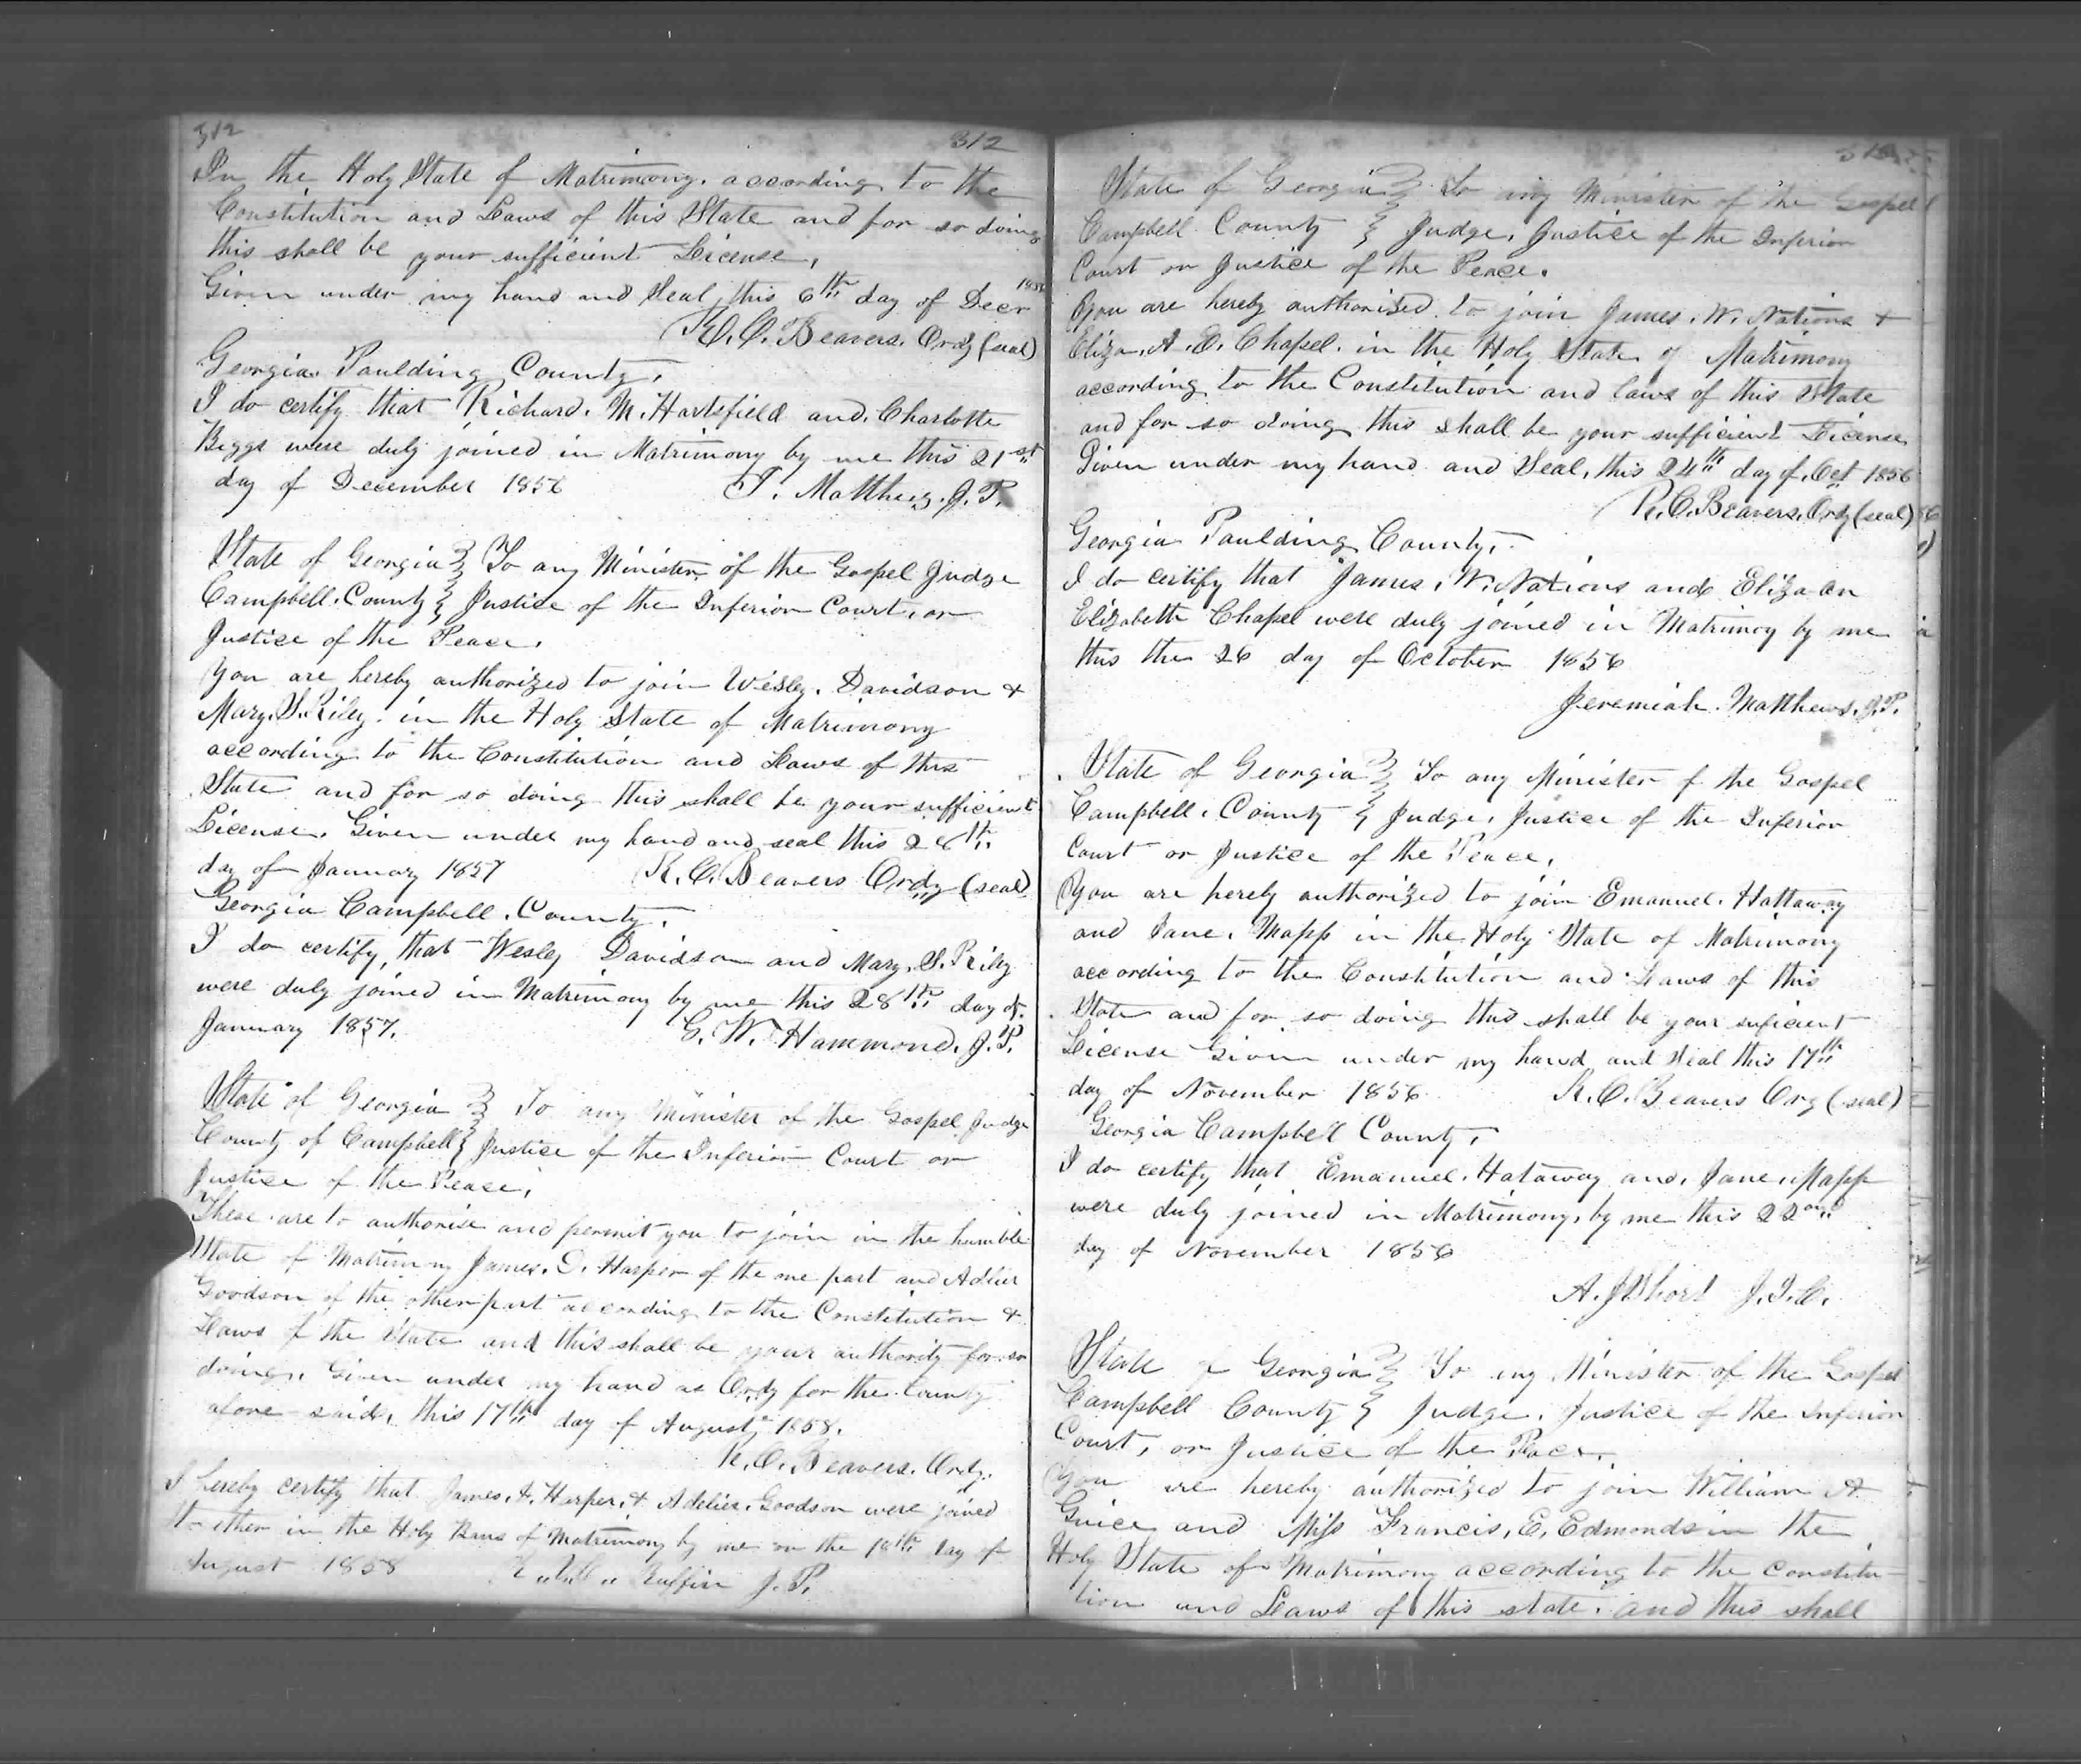 312 312
In the Holy State of Matrimony, according to the
Constitution and Laws of this State and for so doing
this shall be your sufficient License,
Given under my hand and Seal, this 6th day of Decr
R. C. Beavers. Ordy (seal)
Georgia Paulding County,
I do certify that Richard. M. Hartsfield and, Charlotte
Biggs were duly joined in Matrimony by me this 21st
day of December 1856 J. Matthews. J. P.
State of Georgia } To any Minister of the Gospel Judge
Campbell. County } Justice of the Inferior Court, or
Justice of the Peace.
You are hereby authorized to join Wesley. Davidson &
Mary. S. Riley. in the Holy State of Matrimony
according to the Constitution and Laws of this
State and for so doing this shall be your sufficient
License. Given under my hand and seal this 28th
day of January 1857 R. C. Beavers Ordy (seal)
Georgia Campbell. County,
I do certify, that Wesley Davidson and Mary. S. Riley
were duly joined in Matrimony by me this 28th day of
January 1857. G. W. Hammond. J. P.
State of Georgia } To any Minister of the Gospel Judge
County of Campbell } Justice of the Inferior Court or
Justice of the Peace,
These are to authorise and permit you to join in the humble
State of Matrimony James. D. Harper of the one part and Adlier
Goodson of the other part according to the Constitution &
Laws of the State and this shall be your authority for so
doing, Given under my hand as Ordy for the County
afore said, this 17th day of August 1858.
R. C. Beavers. Ordy.
I hereby certify that James, D. Harper, & Adelier. Goodson were joined
together in the Holy Bans of Matrimony by me on the 18th day of
August 1858 Ruffin J. P.
State of Georgia } To any Minister of the Gospel
Campbell County } Judge, Justice of the Inferior
Court or Justice of the Peace.
You are hereby authorised to join James. W. Nations &
Eliza. A. E. Chapel. in the Holy State of Matrimony
according to the Constitution and laws of this State
and for so doing this shall be your sufficient License
Given under my hand and Seal, this 24th day of, Oct 1856
R. C. Beavers. Ordy (seal)
Georgia Paulding County,
I do certify that James, W. Nations and Eliza an
Elizabeth Chapel were duly joined in Matrimoy by me
this the 26 day of October 1856
Jeremiah. Matthews. J. P.
State of Georgia } To any Minister of the Gospel
Campbell. County } Judge, Justice of the Inferior
Court or Justice of the Peace,
You are hereby authorized to join Emanuel. Hattaway
and Jane. Mapp in the Holy State of Matrimony
according to the Constitution and Laws of this
State and for so doing this shall be your suficient
License Given under my hand and Seal this 17th
day of November 1856 R. C. Beavers Ory (seal)
Georgia Campbell County,
I do certify that Emanuel. Hataway and, Jane. Mapp
were duly joined in Matrimony, by me this 22ond
day of November 1856
A. J. Short J. I. C.
State of Georgia } To any Minister of the Gospel
Campbell County } Judge, Justice of the Inferior
Court, or Justice of the Peace.
You are hereby authorized to join William A
Guice and Miss Francis, E. Edmonds in the
Holy State of Matrimony according to the Constitu-
tion and Laws of this state. and this shall